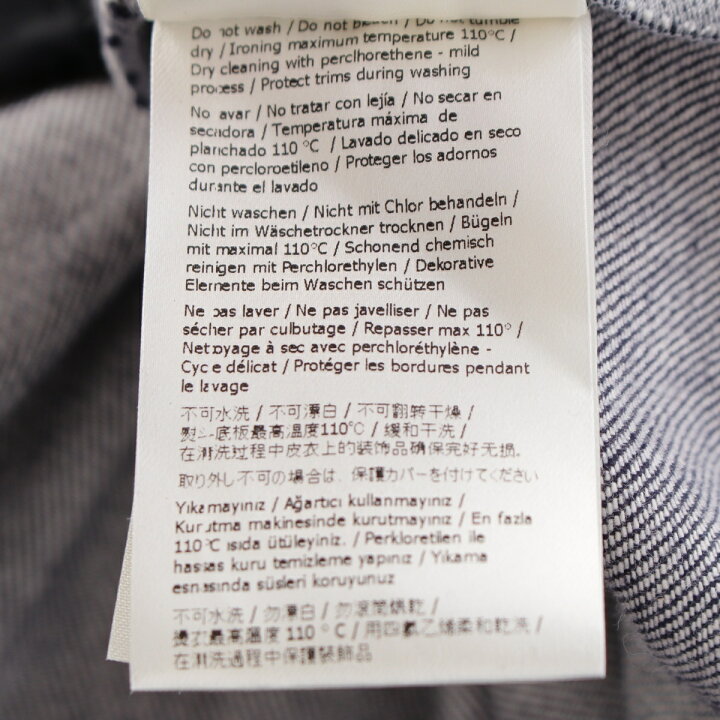 Do not wash / Do not bleach / Do not tumble
dry / Ironing maximum temperature 110°C /
Dry cleaning with perclhorethene - mild
process / Protect trims during washing
No lavar / No tratar con lejía / No secar en
secadora / Temperatura máxima de
planchado 110 °C / Lavado delicado en seco
con percloroetileno / Proteger los adornos
durante el lavado
Nicht waschen / Nicht mit Chlor behandeln /
Nicht im Wäschetrockner trocknen / Bügeln
mit maximal 110°C / Schonend chemisch
reinigen mit Perchlorethylen / Dekorative
Elemente beim Waschen schützen
Ne pas laver / Ne pas javelliser / Ne pas
sécher par culbutage / Repasser max 110° /
Nettoyage à sec avec perchloréthylène -
Cycle délicat / Protéger les bordures pendant
le lavage
不可水洗 / 不可漂白 / 不可翻转干燥 /
熨斗底板最高温度110°C / 缓和干洗 /
在清洗过程中皮衣上的装饰品确保完好无损。
取り外し不可の場合は、保護カバーを付けてください
Yıkamayınız / Ağartıcı kullanmayınız /
Kurutma makinesinde kurutmayınız / En fazla
110 °C ısıda ütüleyiniz. / Perkloretilen ile
hassas kuru temizleme yapınız / Yıkama
esnasında süsleri koruyunuz
不可水洗 / 勿漂白 / 勿滾筒烘乾 /
燙衣最高溫度 110 °C / 用四氯乙烯柔和乾洗 /
在清洗過程中保護裝飾品